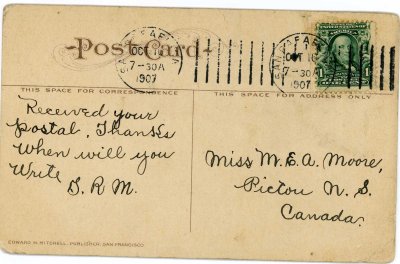 Post Card
SAN RAFAEL
OCT 10
7-30A
1907
OCT 10
7-30A
1907
1
THIS SPACE FOR CORRESPONDENCE
THIS SPACE FOR ADDRESS ONLY
Received your
postal, Thanks
When will you
Write
B. R. M.
Miss M. E. A. Moore,
Pictou N. S.
Canada.
EDWARD H. MITCHELL, PUBLISHER, SAN FRANCISCO